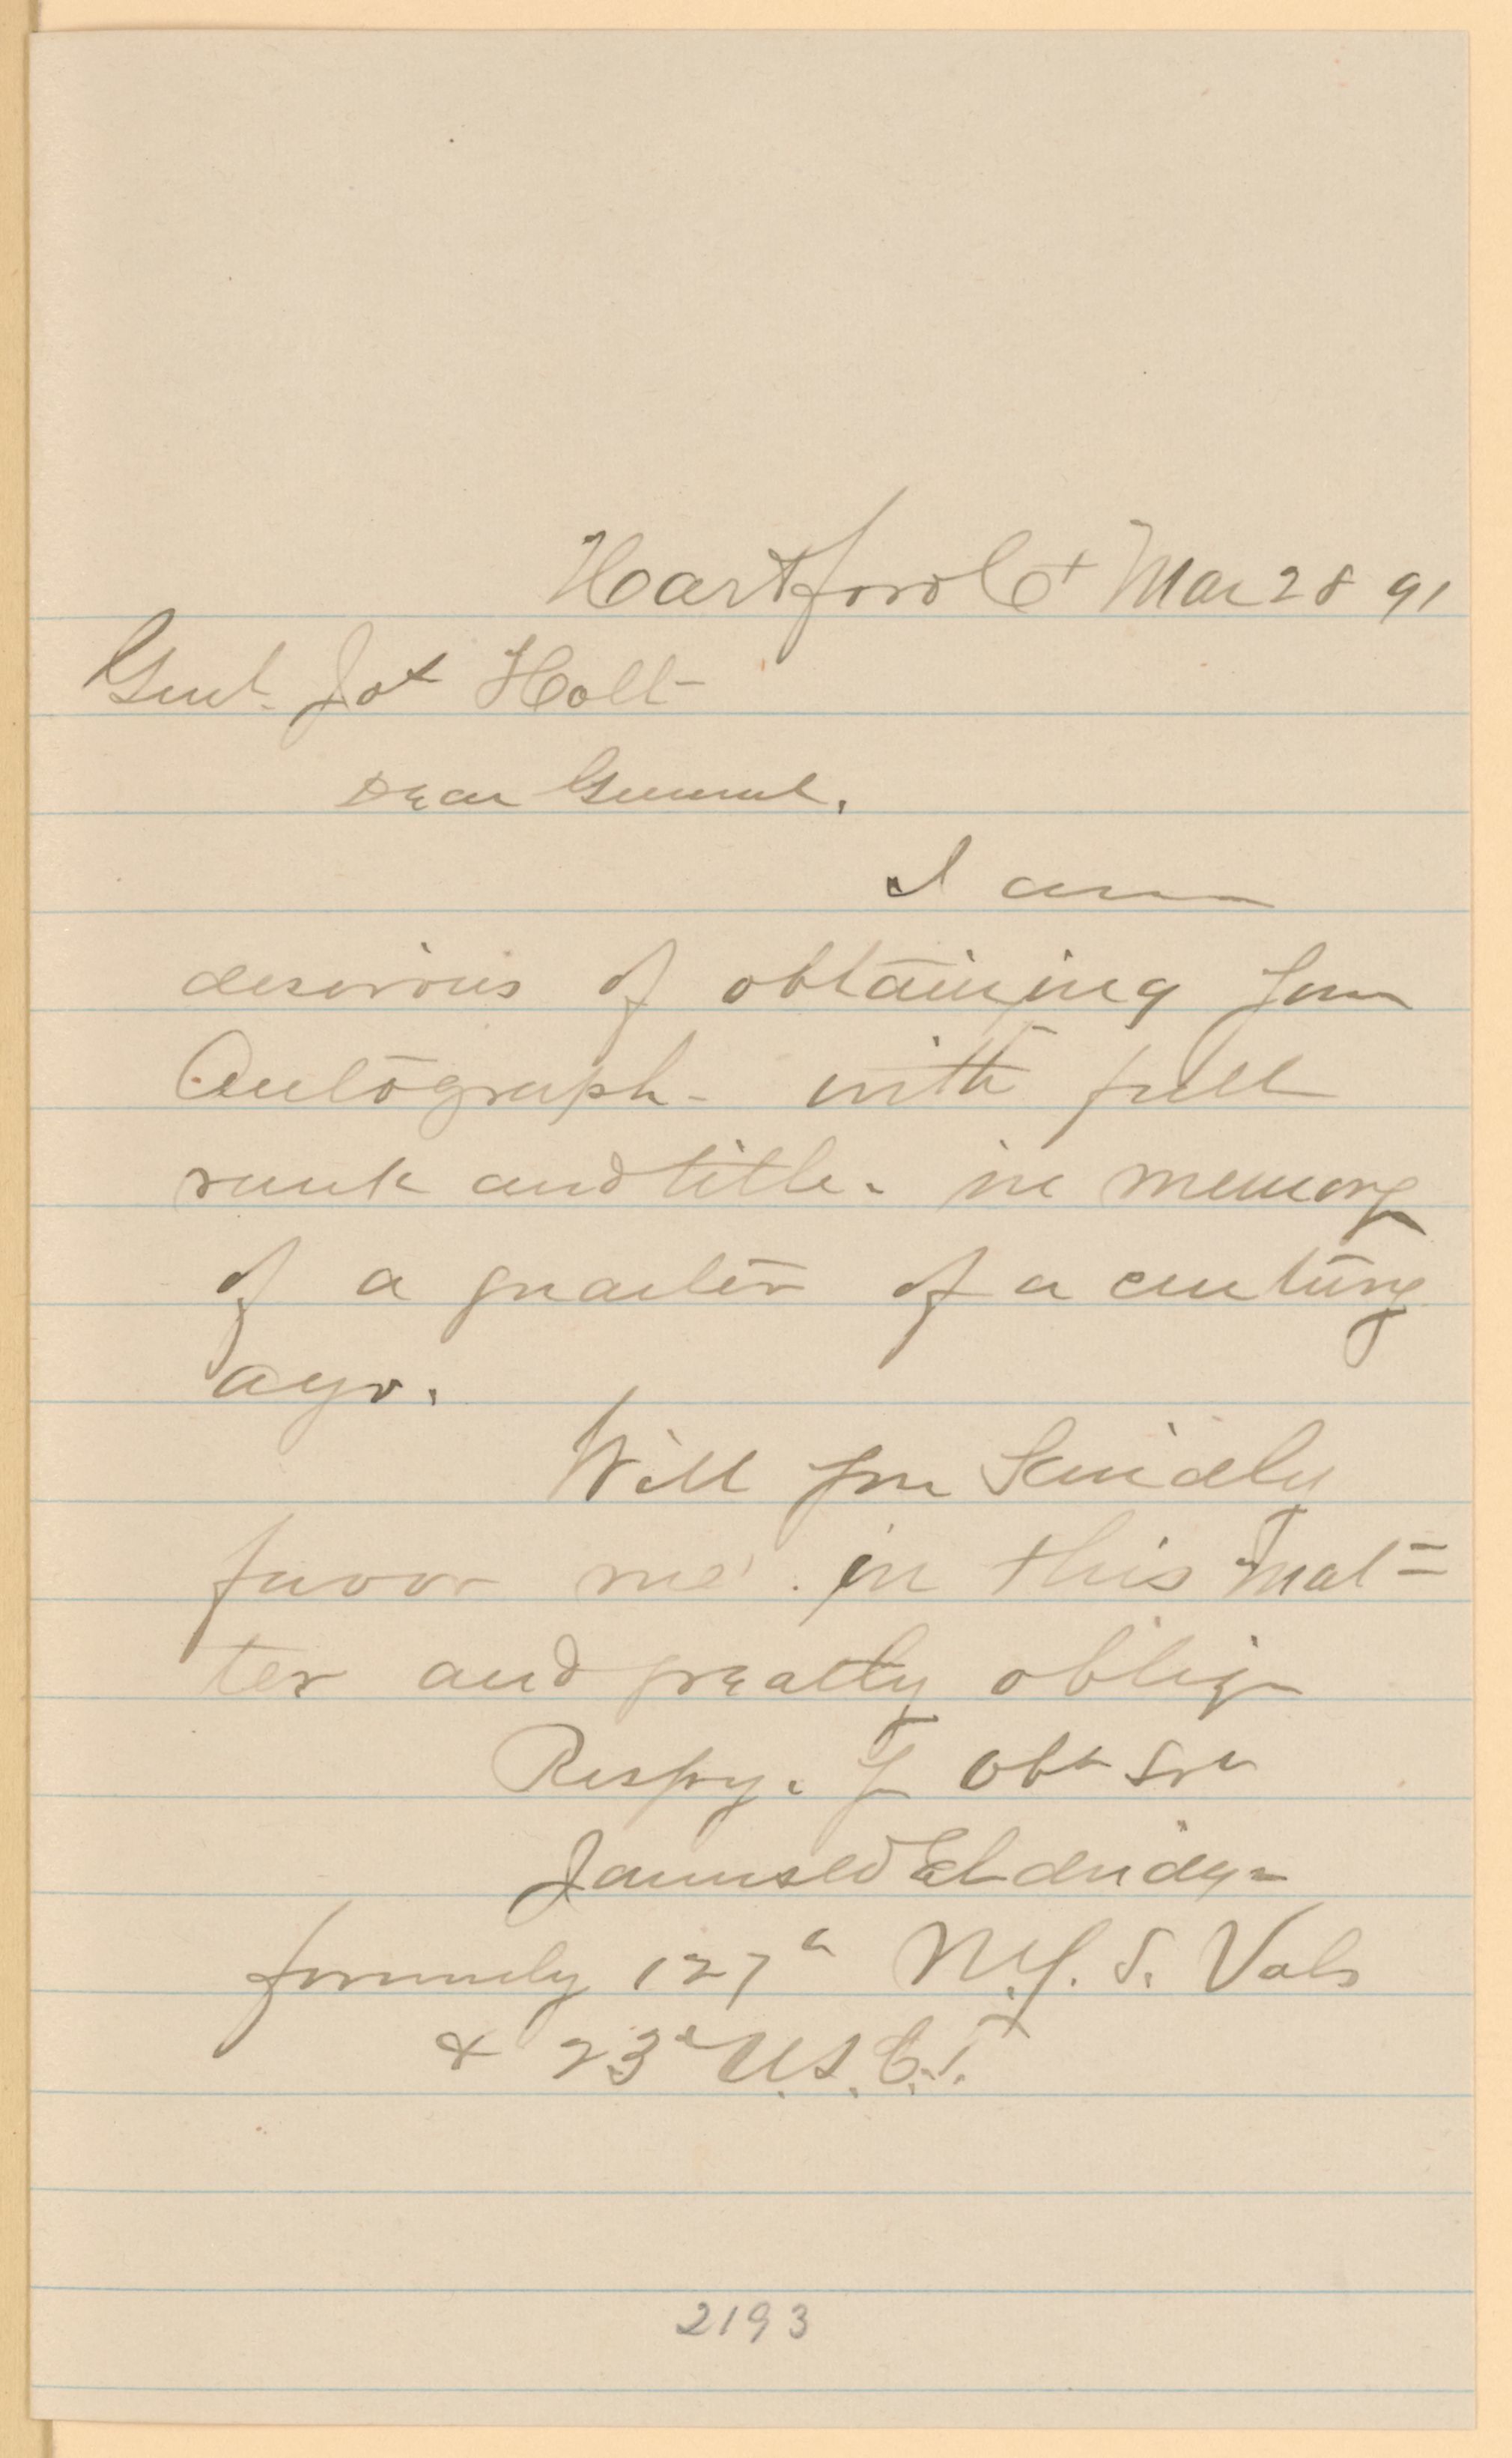 Hartford Ct Mar 28 91
Genl. Jos Holt
Dear General.
I am
desirous of obtaining your
Autograph - with full
rank and title - in memory
of a quarter of a century
ago.
Will you kindly
favor me in this mat=
ter and greatly oblige
Respy. Yr Obt Svt
James W Eldridge
formerly 127th N.Y. S. Vols
& 23d U.S.C.T.
2193